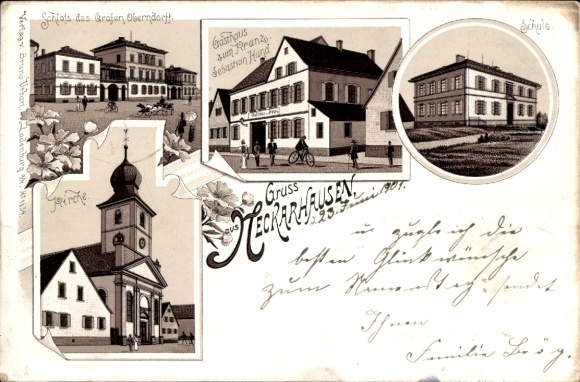 Schloss des Grafen Oberndorff.
Gasthaus
zum Kranze.
Sebastian Hund
Schule.
Kirche.
Verlag v. Bruno Urban, Ladenburg
Gruss
aus NECKARHAUSEN,
23. Juni 1901.
u zugleich die
besten Glückwünsche
zum Namenstag sendet
Ihnen
Familie